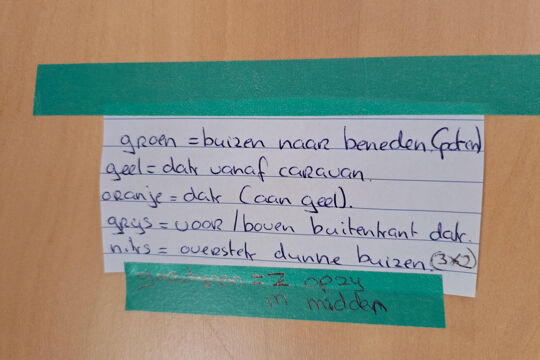 groen = buizen naar beneden (poten)
geel = dak vanaf caravan.
oranje = dak (aan geel).
grijs = voor / boven buitenkant dak.
niks = overstek dunne buizen. (3x2)
= 2 opzy
in midden